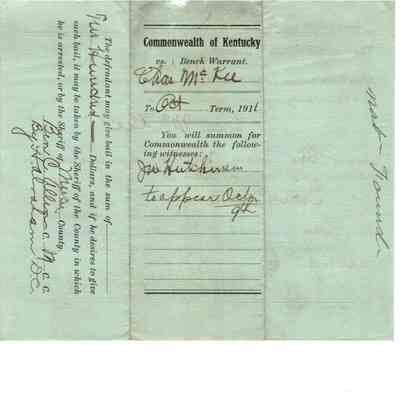 The defendant may give bail in the sum of
Two Hundred Dollars, and if he desires to give
such bail, it may be taken by the Sheriff of the County in which
he is arrested, or by the Sheriff of County
Ben C. Allen C. M. C. C.
By Habraham D.C.
Commonwealth of Kentucky
vs. } Bench Warrant.
Chas McKee
To Oct Term, 1911
You will summon for
Commonwealth the follow-
ing witnesses:
Jno Hutchinson
to appear Octr
9th
not Found